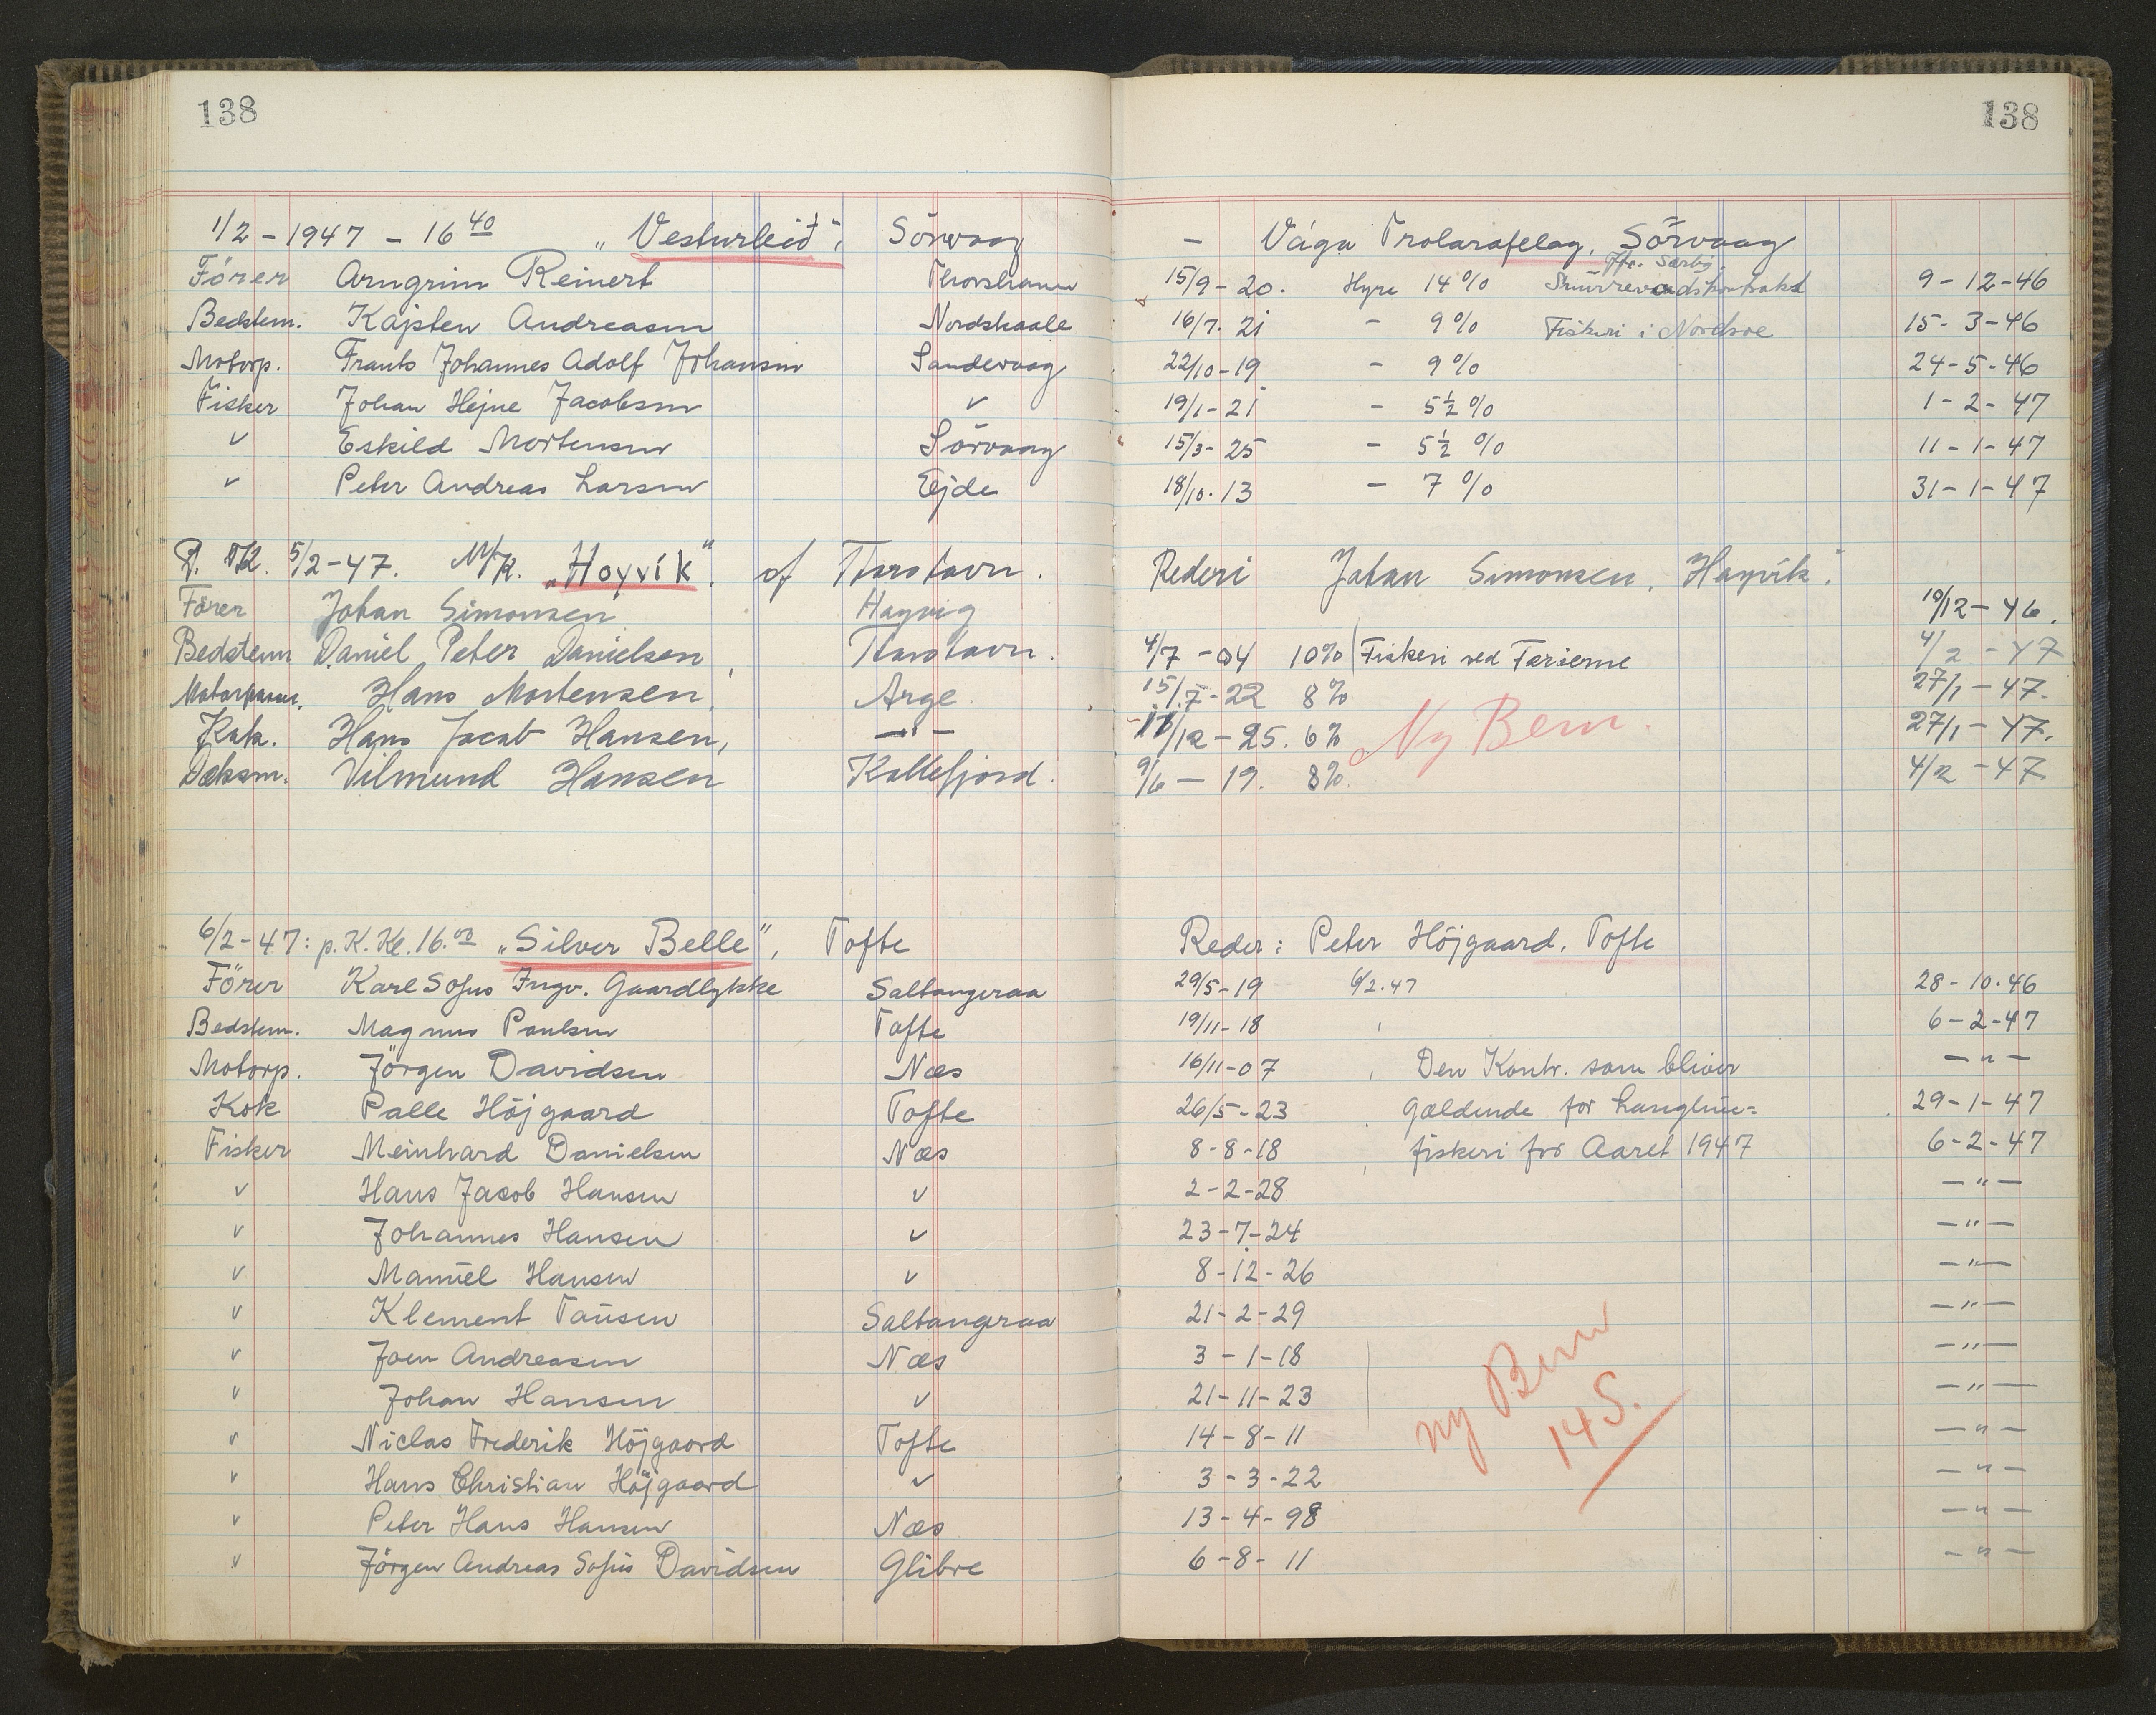 138 138
1/2 - 1947 - 16 40 „Vesturleið“, Sörvaag - Vága Trolarafelag, Sörvaag
Förer Arngrim Reinert Thorshavn 15/9 - 20. Hyre 14 % 9 - 12 - 46
Bedstem. Kajsten Andreasen Nordskaale 16/7. 21 - 9 % Fiskeri i Nordsøe 15 - 3 - 46
Motorp. Frants Johannes Adolf Johansen Sandevaag 22/10 - 19 - 9 % 24 - 5 - 46
Fisker Johan Hejne Jacobsen v 19/1 - 21 - 5½ % 1 - 2 - 47
v Eskild Mortensen Sörvaag 15/3 - 25 - 5½ % 11 - 1 - 47
v Peter Andreas Larsen Ejde 18/10. 13 - 7 % 31 - 1 - 47
P. K. 5/2 - 47. M/K. „Hoyvík“. af Thorshavn. Rederi Johan Simonsen, Høyvík.
Förer Johan Simonsen Høyvig 10/12 - 46.
Bedstem Daniel Peter Danielsen, Thorshavn. 4/7 - 04 10% Fiskeri ved Færøerne 4/2 - 47
Motorpasser. Hans Mortensen, Arge. 15/7 - 22 8% 27/1 - 47.
Kok. Hans Jacob Hansen, -"- 17/12 - 25. 6% Ny Bem. 27/1 - 47.
Dæksm. Vilmund Hansen Kollefjord. 9/6 - 19. 8%. 4/2 - 47
6/2 - 47: p. K. Kl. 16.00 „Silver Belle“, Tofte Reder: Peter Höjgaard, Tofte
Förer Karl Sofus Ingv. Gaardlykke Saltangeraa 29/5 - 19 6/2.47 28 - 10. 46
Bedstem. Magnus Poulsen Tofte 19/11 - 18 6 - 2 - 47
Motorp. Jörgen Davidsen Næs 16/11 - 07 Den Kontr. som bliver -"-
Kok Palle Höjgaard Tofte 26/5 - 23 gældende for Langline= 29 - 1 - 47
Fisker Meinhard Danielsen Næs 8 - 8 - 18 fiskeri for Aaret 1947 6 - 2 - 47
v Hans Jacob Hansen v 2 - 2 - 28 -"-
v Johannes Hansen v 23 - 7 - 24 -"-
v Manuel Hansen v 8 - 12 - 26 -"-
v Klement Tausen Saltangeraa 21 - 2 - 29 -"-
v Joen Andreasen Næs 3 - 1 - 18 -"-
v Johan Hansen v 21 - 11 - 23 ny Bem -"-
v Niclas Frederik Höjgaard Tofte 14 - 8 - 11 14 S. -"-
v Hans Christian Höjgaard v 3 - 3 - 22 -"-
v Peter Hans Hansen Næs 13 - 4 - 98 -"-
v Jörgen Andreas Sofus Davidsen Glibre 6 - 8 - 11 -"-